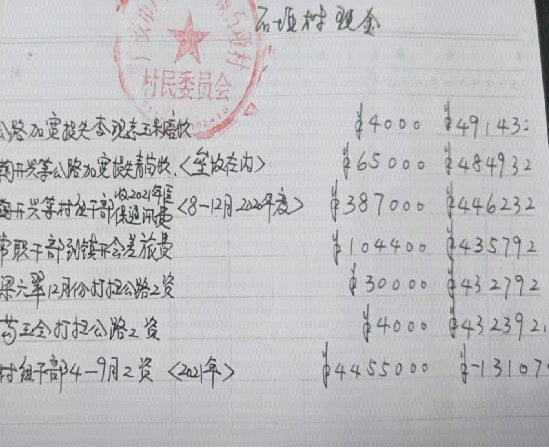 石垭村现金
村民委员会
公路加宽损失 ¥4000 ¥49143
南开兴等公路加宽损失青苗款<垒坟在内> ¥65000 ¥484932
南开兴等村组干部收2021年医保通讯费<8-12月2020年度> ¥387000 ¥446232
常职干部到镇开会差旅费 ¥104400 ¥435792
梁六翠12月份打扫公路工资 ¥30000 ¥432792
苟玉全打扫公路工资 ¥4000 ¥432392
村组干部4-9月工资<2021年> ¥4455000 ¥-13107